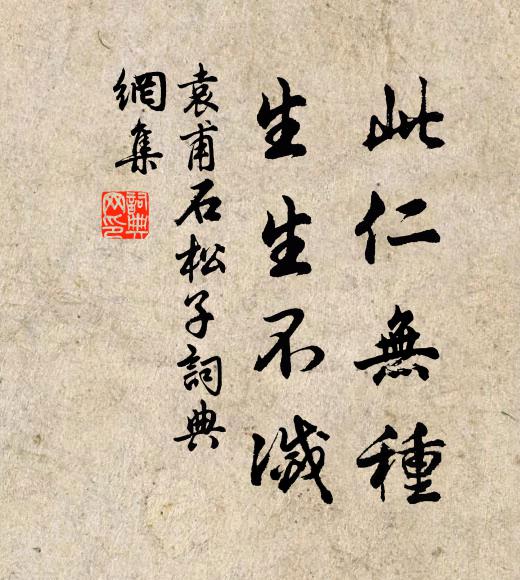 此仁無種
生生不滅
袁甫石松子詞典
網集
詞典
网印